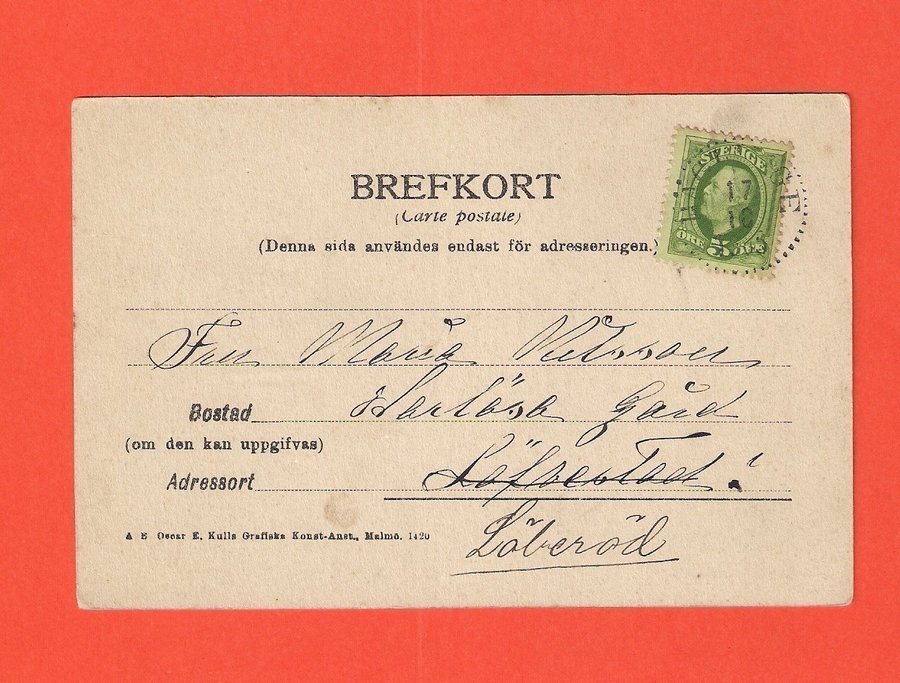 BREFKORT
(Carte postale)
(Denna sida användes endast för adresseringen.)
SVERIGE
17
10
ÖRE 5 ÖRE
Fru Maria Nilsson
Bostad Harlösa Gård
(om den kan uppgifvas)
Adressort Löfvestad!
A B Oscar E. Kulls Grafiska Konst-Anst., Malmö. 1420
Löberöd